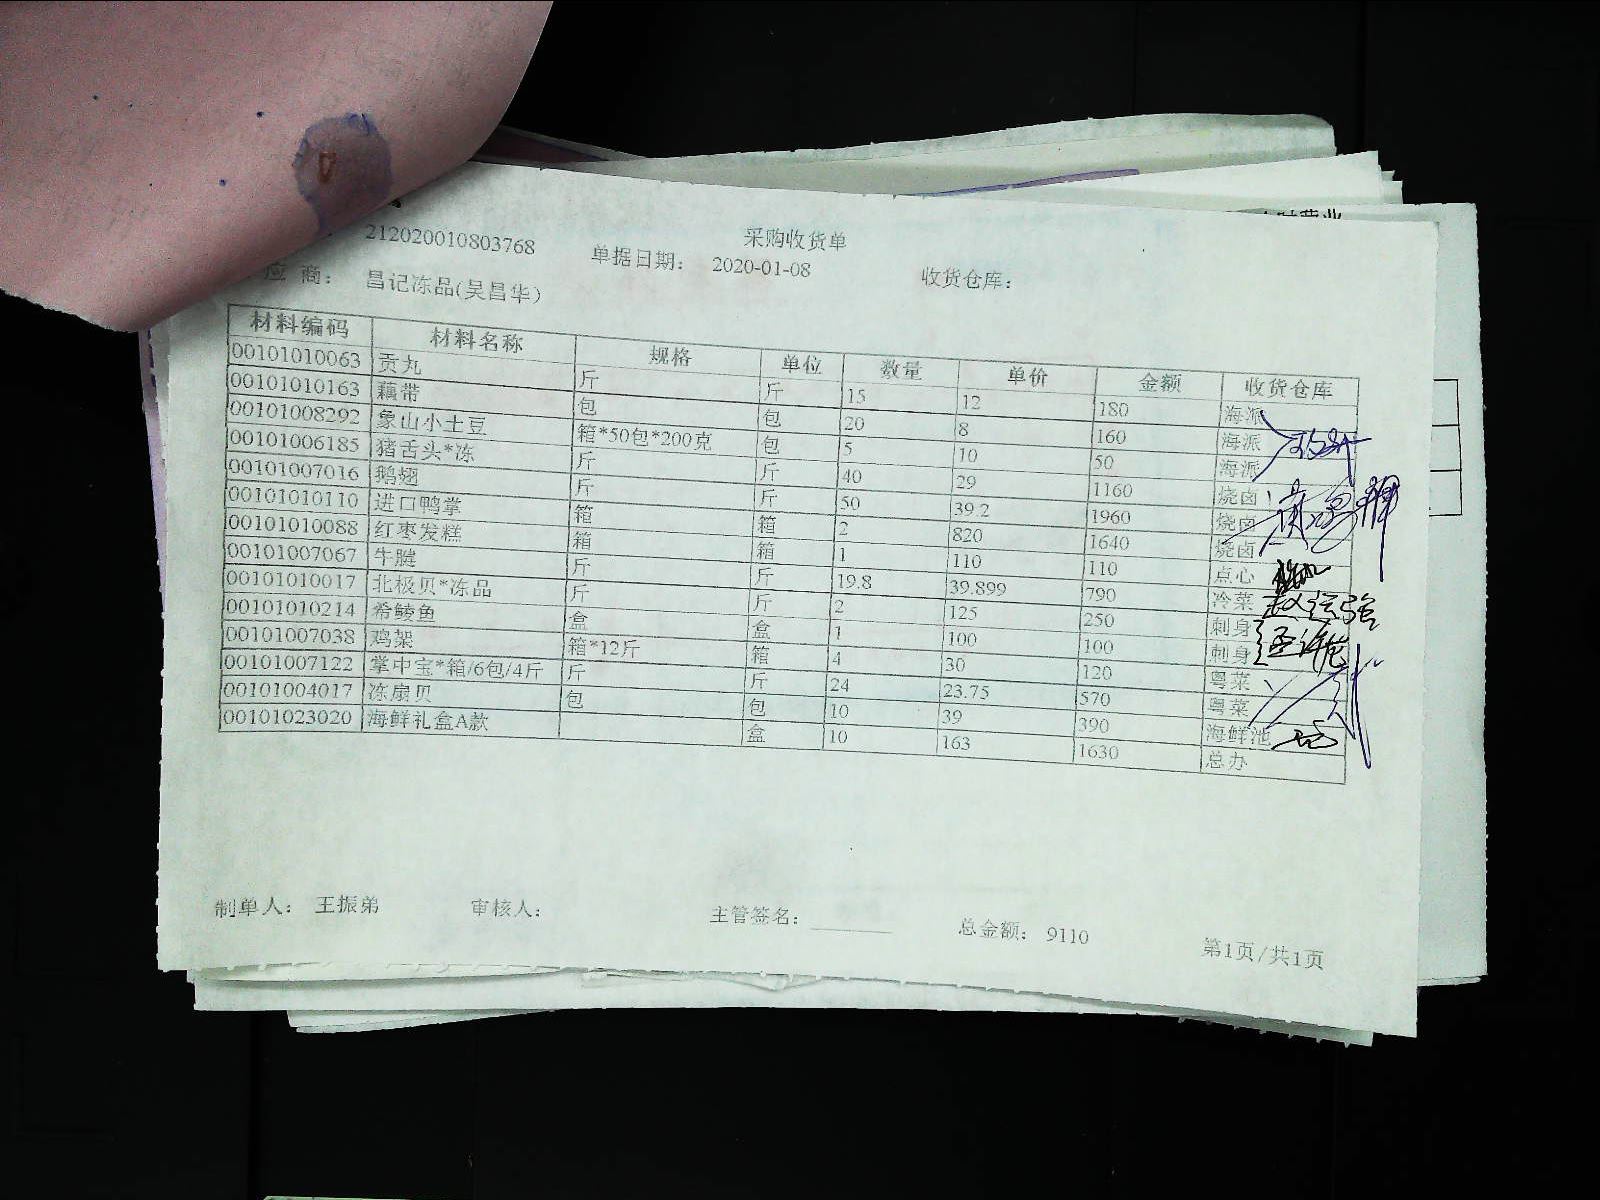 采购收货单
212020010803768 单据日期： 2020-01-08 收货仓库：
应 商： 昌记冻品(吴昌华)
材料编码 材料名称 规格 单位 数量 单价 金额 收货仓库
00101010063 贡丸 斤 斤 15 12 180 海派
00101010163 藕带 包 包 20 8 160 海派
00101008292 象山小土豆 箱*50包*200克 包 5 10 50 海派
00101006185 猪舌头*冻 斤 斤 40 29 1160 烧卤
00101007016 鹅翅 斤 斤 50 39.2 1960 烧卤
00101010110 进口鸭掌 箱 箱 2 820 1640 烧卤
00101010088 红枣发糕 箱 箱 1 110 110 点心
00101007067 牛腱 斤 斤 19.8 39.899 790 冷菜
00101010017 北极贝*冻品 斤 斤 2 125 250 刺身
00101010214 希鲮鱼 盒 盒 1 100 100 刺身
00101007038 鸡架 箱*12斤 箱 4 30 120 粤菜
00101007122 掌中宝*箱/6包/4斤 斤 斤 24 23.75 570 粤菜
00101004017 冻扇贝 包 包 10 39 390 海鲜池
00101023020 海鲜礼盒A款 盒 10 163 1630 总办
制单人： 王振弟 审核人： 主管签名： 总金额： 9110 第1页/共1页